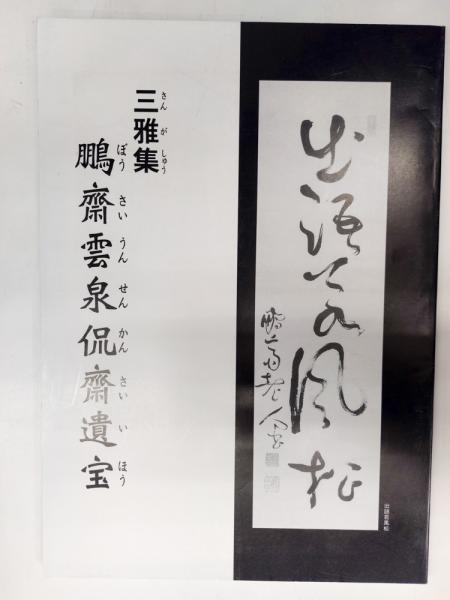 出語若風松
鵬斎老人書
出語若風松
さんがしゅう
三雅集
ぼうさいうんせんかんさいいほう
鵬齋雲泉侃齋遺宝